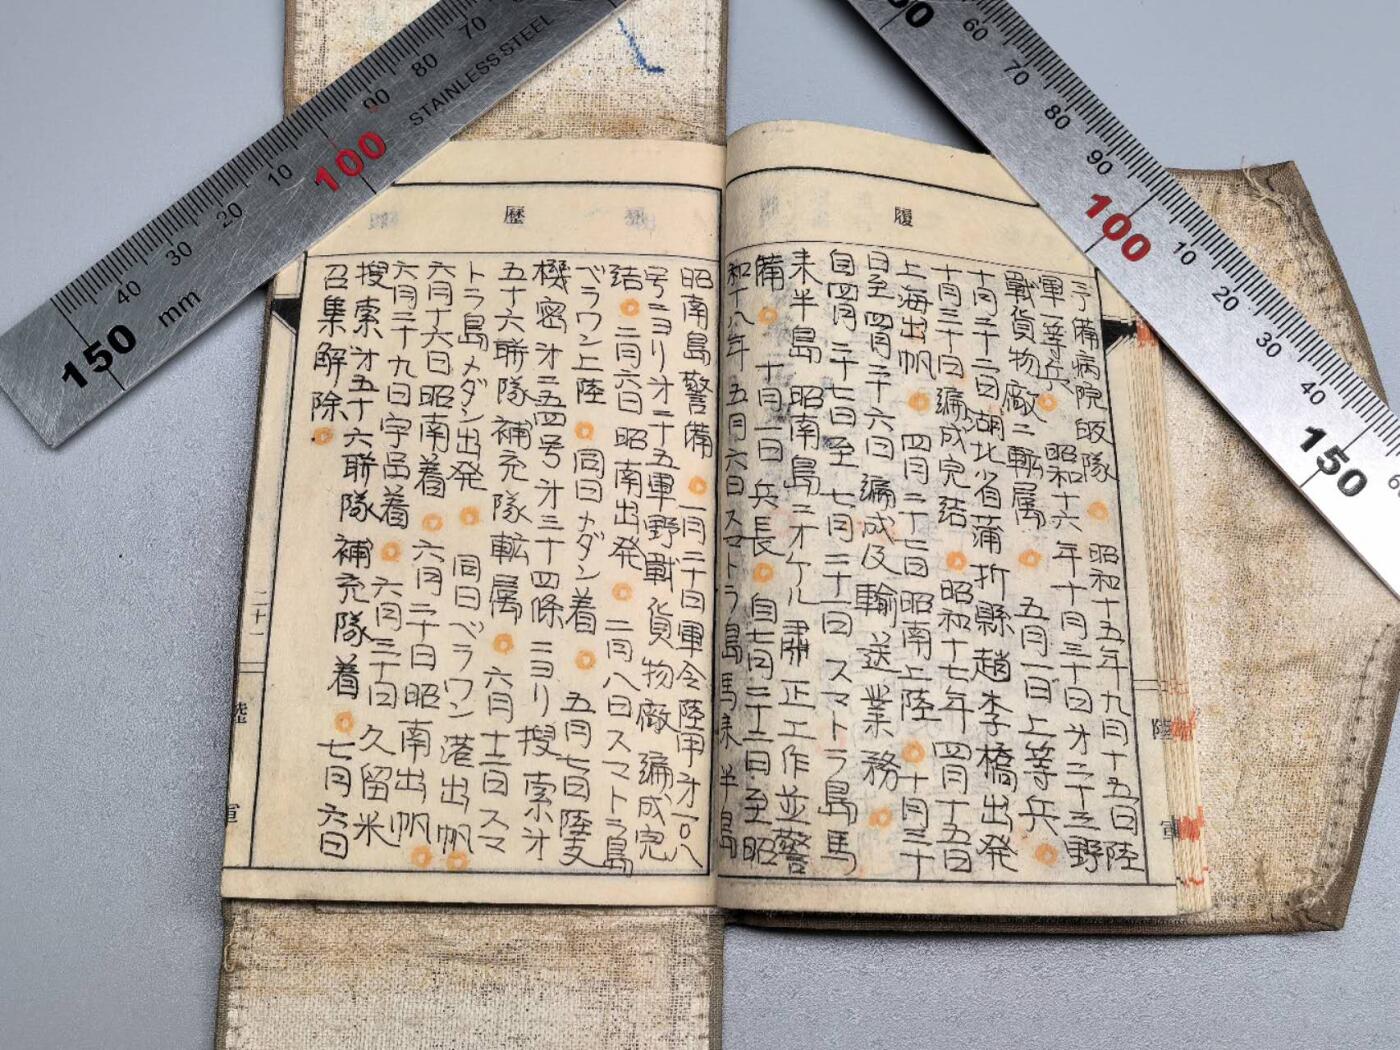 履
于備病院皈隊。昭和十五年九月十五日陸
軍一等兵。昭和十六年十月三十日才二十三野
戰貨物廠ニ転属。五月一日上等兵。
十月二十二日湖北省蒲折縣趙李橋出発
十月三十日編成完結。昭和十七年四月十五日
上海出帆。四月二十二日昭南上陸。十月三十
日至四月二十六日編成及輸送業務。
自四月二十七日至七月二十一日スマトラ島馬
来半島昭南島ニオケル肅正工作並警
備。十一日兵長。自七月二十二日至昭
和十八年五月六日スマトラ島馬来半島
歴
昭南島警備。一月二十日軍令陸甲才一〇八
号ニヨリ才二十五軍野戰貨物廠編成完
結。二月六日昭南出発。二月八日スマトラ島
ベラワン上陸。同日メダン着。五月七日陸支
機密才二五四号才三十四條ニヨリ捜索才
五十六聯隊補充隊転属。六月十二日スマ
トラ島メダン出発。同日ベラワン港出帆。
六月十六日昭南着。六月二十日昭南出帆。
六月二十九日宇品着。六月三十日久留米
捜索才五十六聯隊補充隊着。七月六日
召集解除。
二十一
陸
軍
陸
軍
150
mm
40
30
20
10
100
90
80
70
STAINLESS STEEL
60
70
80
90
100
10
20
30
40
150